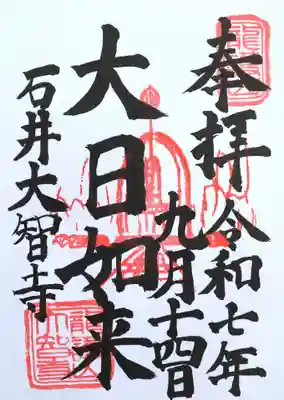 奉拝
令和七年
九月十四日
大日如来
石井大智寺